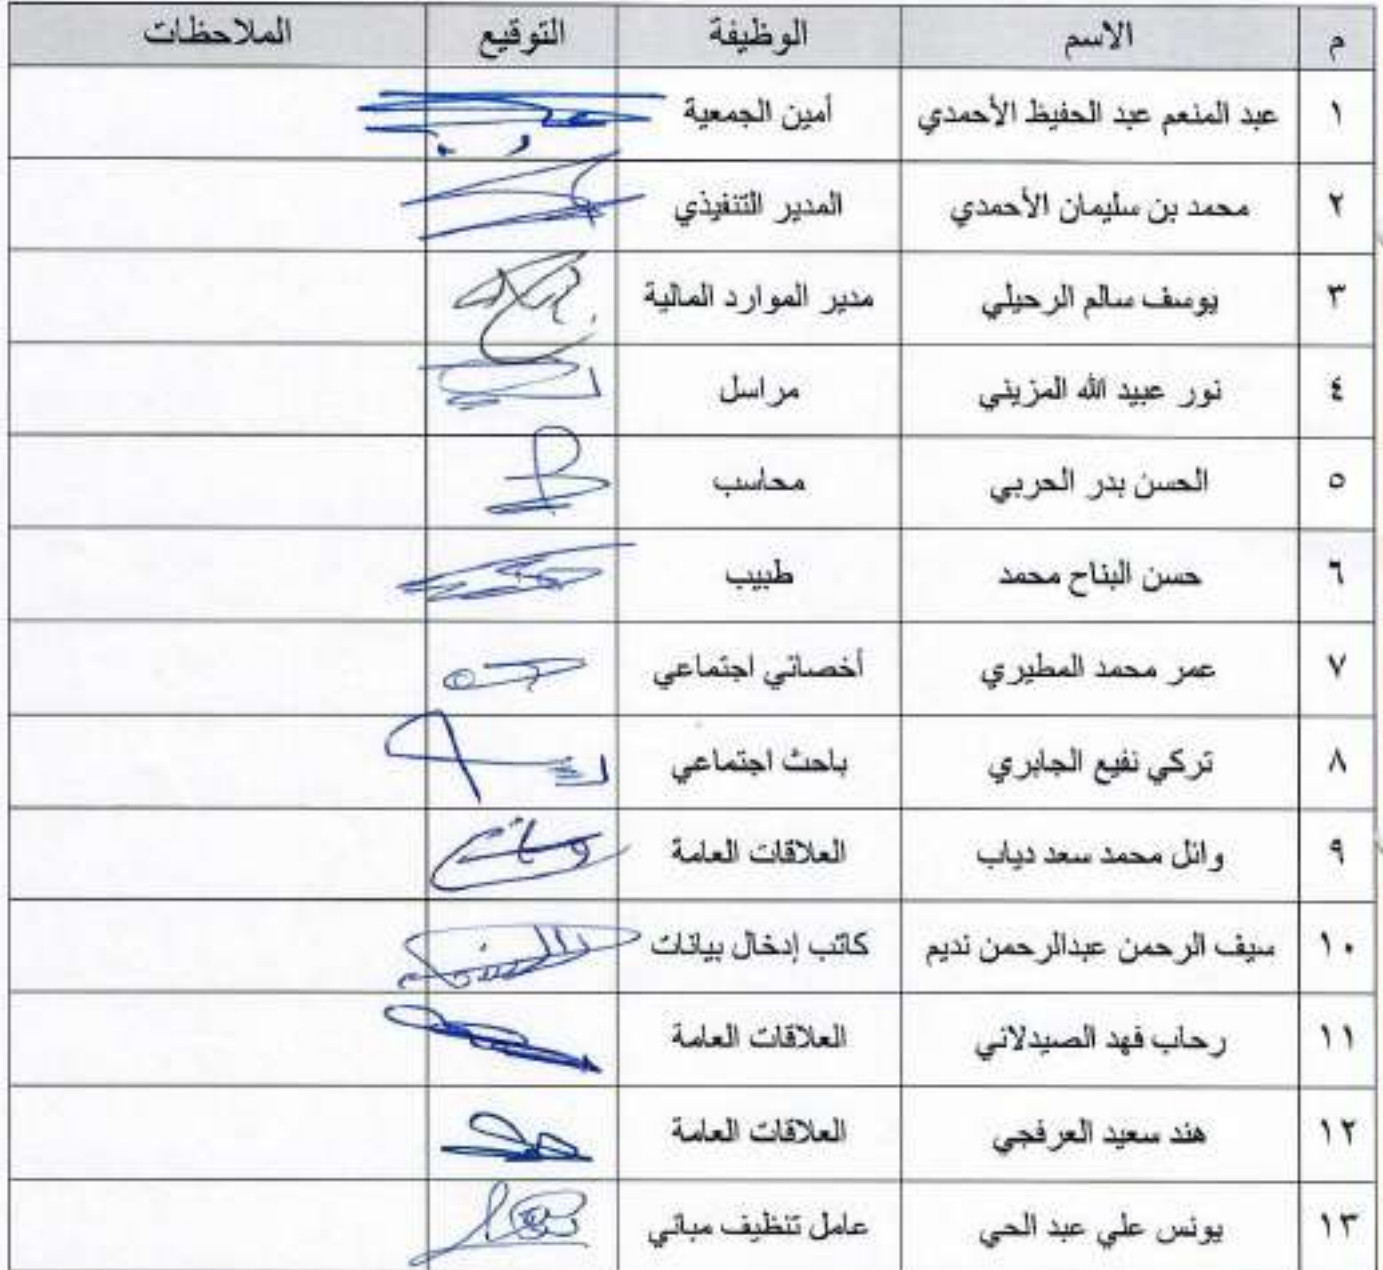 م الاسم الوظيفة التوقيع الملاحظات
١ عبد المنعم عبد الحفيظ الأحمدي أمين الجمعية
٢ محمد بن سليمان الأحمدي المدير التنفيذي
٣ يوسف سالم الرحيلي مدير الموارد المالية
٤ نور عبيد الله المزيني مراسل
٥ الحسن بدر الحربي محاسب
٦ حسن البناح محمد طبيب
٧ عمر محمد المطيري أخصائي اجتماعي
٨ تركي نفيع الجابري باحث اجتماعي
٩ وائل محمد سعد دياب العلاقات العامة
١٠ سيف الرحمن عبدالرحمن نديم كاتب إدخال بيانات
١١ رحاب فهد الصيدلاني العلاقات العامة
١٢ هند سعيد العرفجي العلاقات العامة
١٣ يونس علي عبد الحي عامل تنظيف مباني